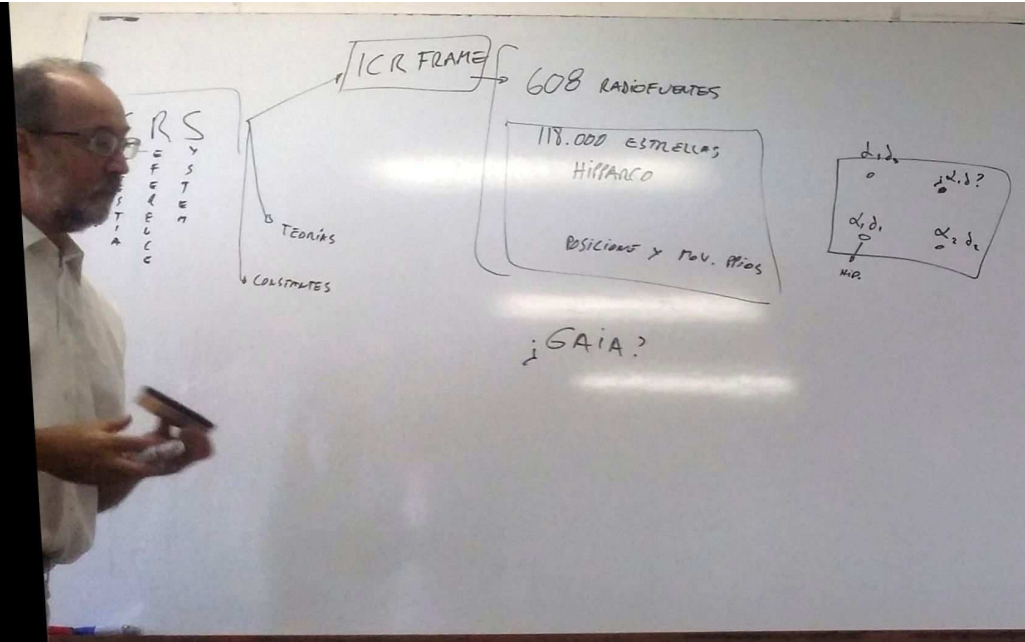 ICR FRAME
608 RADIOFUENTES
118.000 ESTRELLAS
HIPPARCO
POSICIONE Y MOV. PPIOS
¿GAIA?
R S
REFERENCE
SYSTEM
TEORÍAS
CONSTANTES
¿α,δ?
α₁ δ₁
α₂ δ₂
HIP.